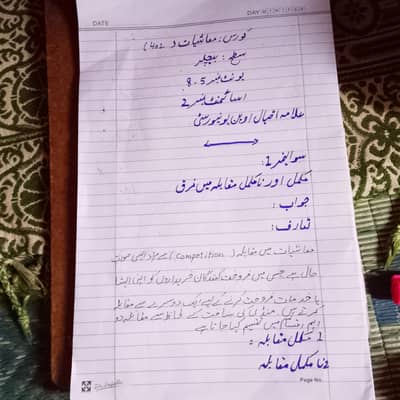 DATE
DAY: M T W T F S S
کورس: معاشیات (402)
سطح: بیچلر
یونٹ نمبر 5.8
اسائمنٹ نمبر 2
علامہ اقبال اوپن یونیورسٹی
سوالنمبر 1:
مکمل اور نامکمل مقابلہ میں فرق
جواب:
تعارف:
معاشیات میں مقابلہ (Competition) سے مراد ایسی صورت
حال ہے جس میں فروخت کنندگان خریداروں کو اپنی اشیا
یا خدمات فروخت کرنے کےلیے ایک دوسرے سے مقابلہ
کرتے ہیں۔ منڈی کی ساخت کے لحاظ سے مقابلہ دو
اہم اقسام میں تقسیم کیا جاتا ہے
1 مکمل مقابلہ =
2 نا مکمل مقابلہ
Page No.